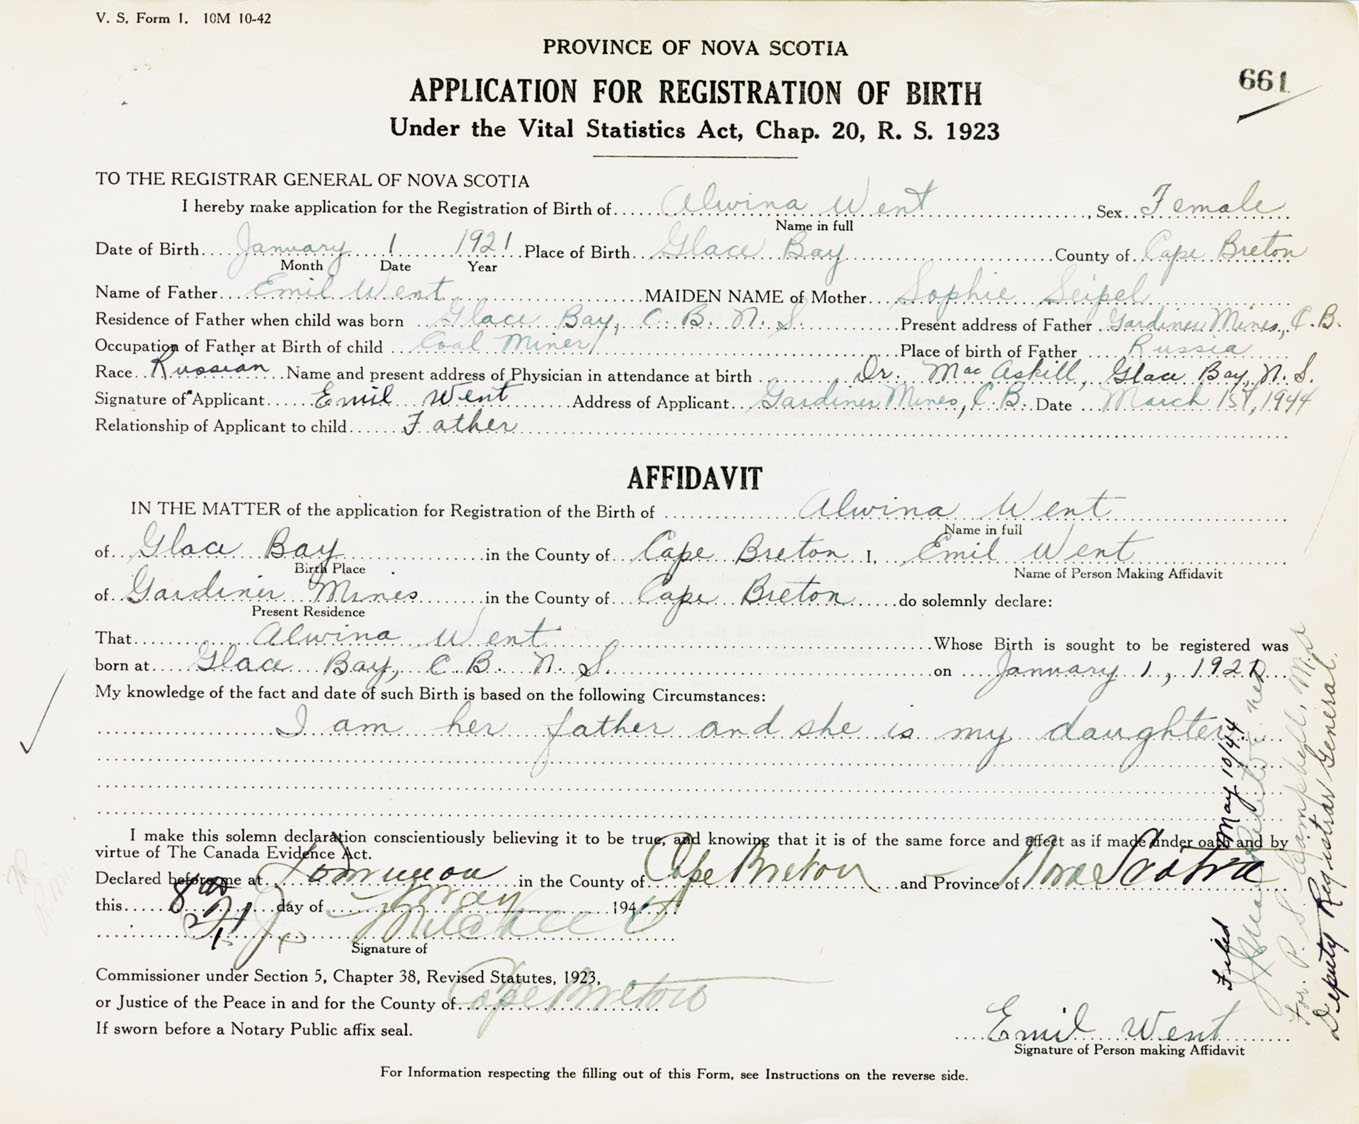 V. S. Form 1. 10M 10-42
PROVINCE OF NOVA SCOTIA
661
APPLICATION FOR REGISTRATION OF BIRTH
Under the Vital Statistics Act, Chap. 20, R. S. 1923
TO THE REGISTRAR GENERAL OF NOVA SCOTIA
I hereby make application for the Registration of Birth of Alwina Went, Sex Female
Name in full
Date of Birth January 1 1921 Place of Birth Glace Bay County of Cape Breton
Month Date Year
Name of Father Emil Went MAIDEN NAME of Mother Sophie Seipel
Residence of Father when child was born Glace Bay, C. B. N. S. Present address of Father Gardiner Mines, C. B.
Occupation of Father at Birth of child Coal Miner Place of birth of Father Russia
Race Russian Name and present address of Physician in attendance at birth Dr. MacAskill, Glace Bay, N. S.
Signature of Applicant Emil Went Address of Applicant Gardiner Mines, C. B. Date March 1st, 1944
Relationship of Applicant to child Father
AFFIDAVIT
IN THE MATTER of the application for Registration of the Birth of Alwina Went
Name in full
of Glace Bay in the County of Cape Breton I, Emil Went
Birth Place Name of Person Making Affidavit
of Gardiner Mines in the County of Cape Breton do solemnly declare:
Present Residence
That Alwina Went Whose Birth is sought to be registered was
born at Glace Bay, C. B. N. S. on January 1, 1921
My knowledge of the fact and date of such Birth is based on the following Circumstances:
I am her father and she is my daughter.
I make this solemn declaration conscientiously believing it to be true, and knowing that it is of the same force and effect as if made under oath and by
virtue of The Canada Evidence Act.
Declared before me at Dominion in the County of Cape Breton and Province of Nova Scotia
this day of May 194
Mitchell
Signature of
Commissioner under Section 5, Chapter 38, Revised Statutes, 1923,
or Justice of the Peace in and for the County of Cape Breton
If sworn before a Notary Public affix seal.
Emil Went
Signature of Person making Affidavit
For Information respecting the filling out of this Form, see Instructions on the reverse side.
Filed May 10/44
For. P. S. Campbell, M.D.
Deputy Registrar General.